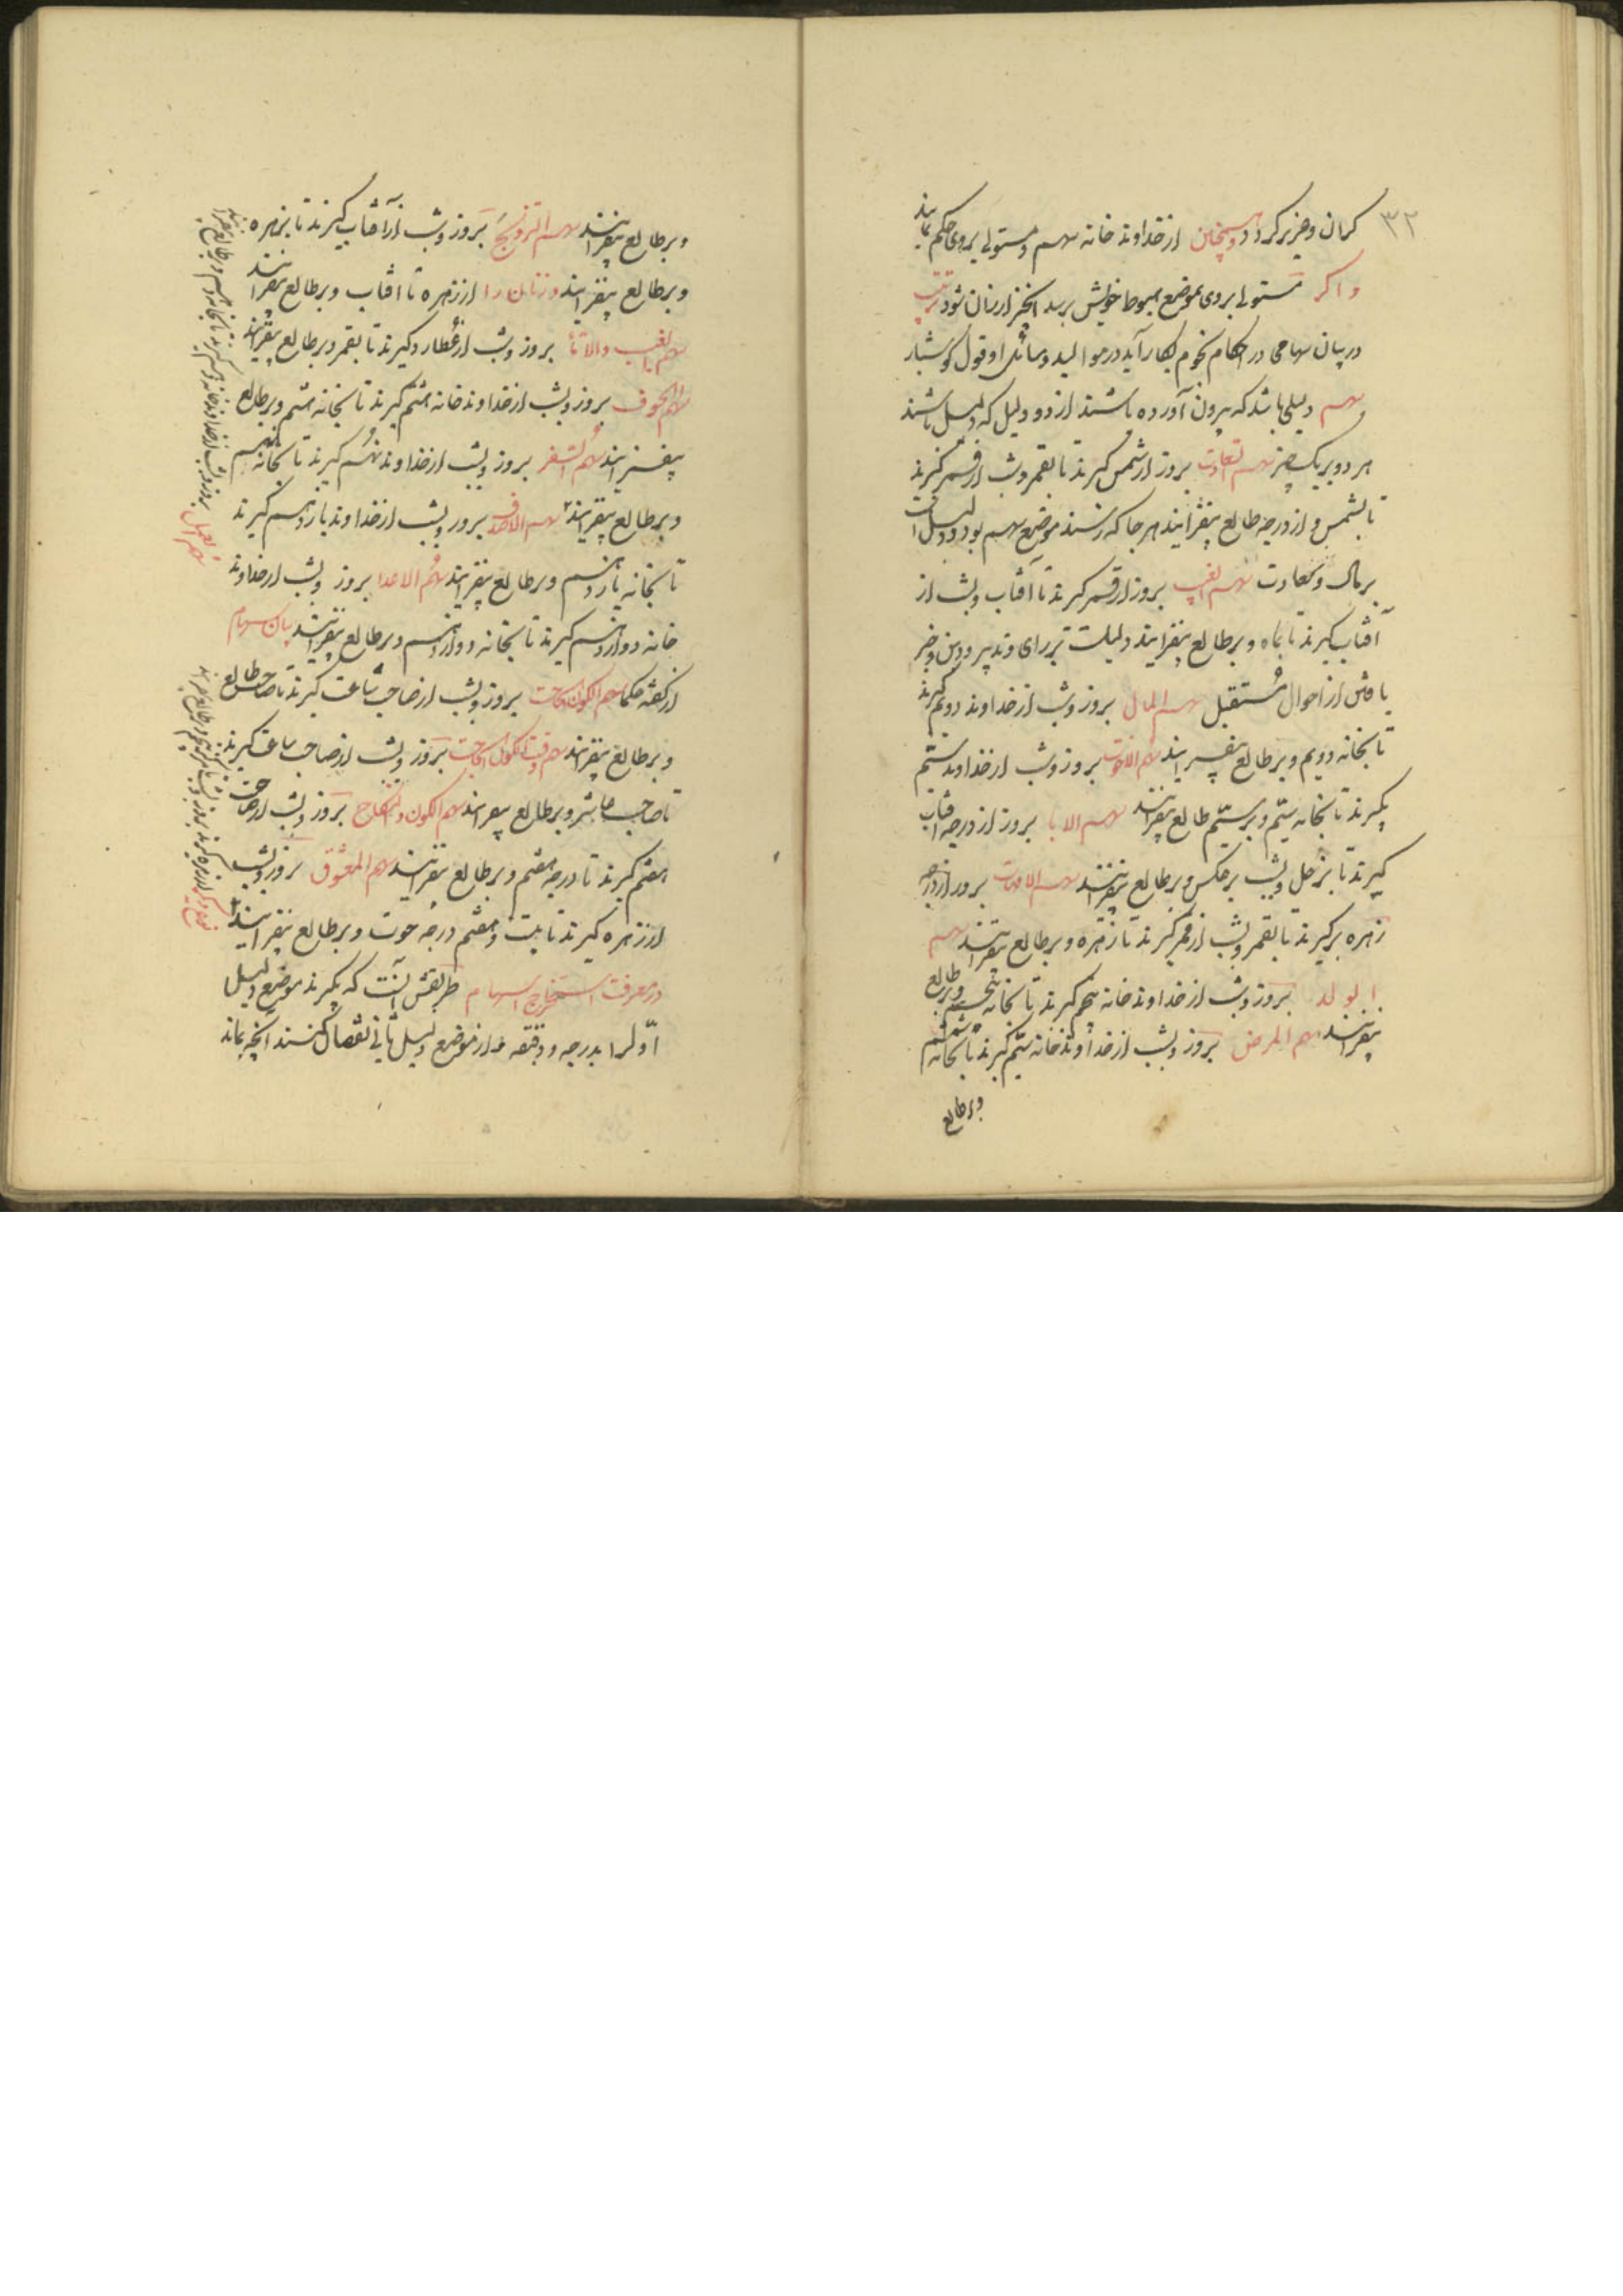 ۳۲
کران و خر بر کردد و همچنین از خداوند خانه سهم و مستولی بروی حکم نمایند
و اکر مستولی بروی بموضع هبوط خویش برسد ارزان شود
در بیان سهامی در احکام نجوم بکار آید در موالید و مسائل و قول کوشیار
سهم دلیلی باشد که بیرون آورده باشند از دو دلیل که دلیل باشند
هر دو بر یک چیز سهم السعادت بروز از شمس کیرند تا بقمر و بشب از قمر کیرند
تا بشمس و از درجه طالع بیفزایند هر جا که رسند موضع سهم بود و دلیل است
بر مال و سعادت سهم الغیب بروز از قمر کیرند تا آفتاب و بشب از
آفتاب کیرند تا بماه و بر طالع بیفزایند دلیلست بر رای و تدبیر و دین و خبر
یافتن از احوال مستقبل سهم المال بروز و شب از خداوند دویم کیرند
تا بخانه دویم و بر طالع بیفزایند سهم الاخوت بروز و شب از خداوند سیم
بکیرند تا بخانه سیم و بر طالع بیفزایند سهم الابا بروز از درجه آفتاب
کیرند تا بزحل و بشب بر عکس و بر طالع بیفزایند سهم الامهات بروز از درجه
زهره بر کیرند تا بقمر و بشب از قمر کیرند تا زهره و بر طالع بیفزایند سهم
الولد بروز و شب از خداوند خانه پنجم کیرند تا بخانه پنجم و بر طالع
بیفزایند سهم المرض بروز و بشب از خداوند خانه ششم کیرند تا بخانه ششم
و بر طالع
و بر طالع بیفزایند سهم التزویج بروز و شب از آفتاب کیرند تا بزهره
و بر طالع بیفزایند و زنان را از زهره تا آفتاب و بر طالع بیفزایند
بروز و شب از عطارد کیرند تا بقمر و بر طالع بیفزایند
سهم الخوف بروز و بشب از خداوند خانه هشتم کیرند تا بخانه هشتم و بر طالع
بیفزایند سهم السفر بروز و بشب از خداوند نهم کیرند تا بخانه نهم
و بر طالع بیفزایند سهم الاصدقا بروز و بشب از خداوند یازدهم کیرند
تا بخانه یازدهم و بر طالع بیفزایند سهم الاعدا بروز و بشب از خداوند
خانه دوازدهم کیرند تا بخانه دوازدهم و بر طالع بیفزایند بیان سهام
از کفته حکما سهم بروز و بشب از صاحب ساعت کیرند تا صاحب طالع
و بر طالع بیفزایند سهم بروز و بشب از صاحب ساعت کیرند
تا صاحب عاشر و بر طالع بیفزایند سهم النکاح بروز و بشب از صاحب
هفتم کیرند تا درجه هفتم و بر طالع بیفزایند سهم المعشوق بروز و بشب
از زهره کیرند تا بیست و هفتم درجه حوت و بر طالع بیفزایند
در معرفت استخراج سهام طریقش آنست که بکیرند موضع دلیل
اول را بدرجه و دقیقه و از موضع دلیل ثانی نقصان کنند آنچه بماند
سهم العمل بروز و بشب از خداوند خانه دهم کیرند تا بخانه دهم و بر طالع بیفزایند